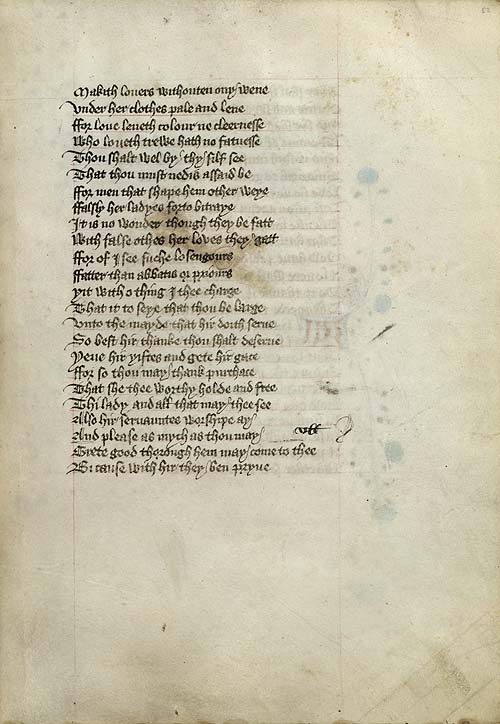 Makith louers withouten ony wene
Vnder her clothes pale and lene
ffor loue leueth colour ne cleernesse
Who loueth trewe hath no fatnesse
Thou shalt wel by thy silf see
That thou must nedis assaid be
ffor men that shape hem other weye
ffalsly her ladyes forto bitraye
It is no wonder though they be fatt
With false othes her loues they gatt
ffor of I see suche losengours
ffatter than abbatis or priours
yit with o thing I thee charge
That it to seye that thou be large
Vnto the mayde that hir doith serue
So best hir thanke thou shalt deserue
yeue hir yiftes and gete hir grace
ffor so thou may thank purchace
That she thee worthy holde and free
Thi lady and all that may thee see
Also hir seruauntes worshipe ay
And please as mych as thou may
Grete good thorough hem may come to thee
Bi cause with hir they ben pryue